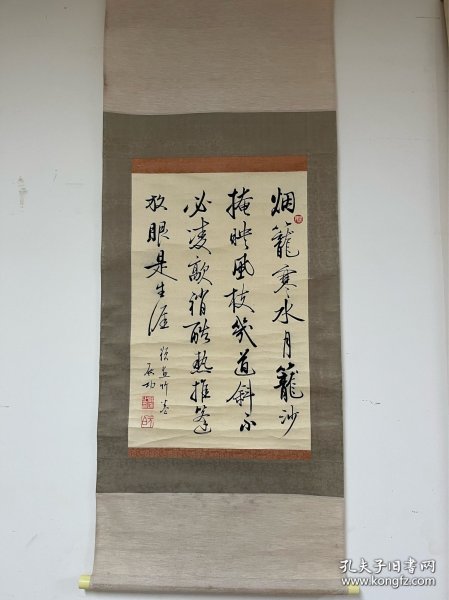 烟籠寒水月籠沙
掩映風枝幾道斜不
必凌歊消酷熱推篷
放眼是生涯
題畫竹舊
启功
孔夫子旧书网
www.kongfz.com